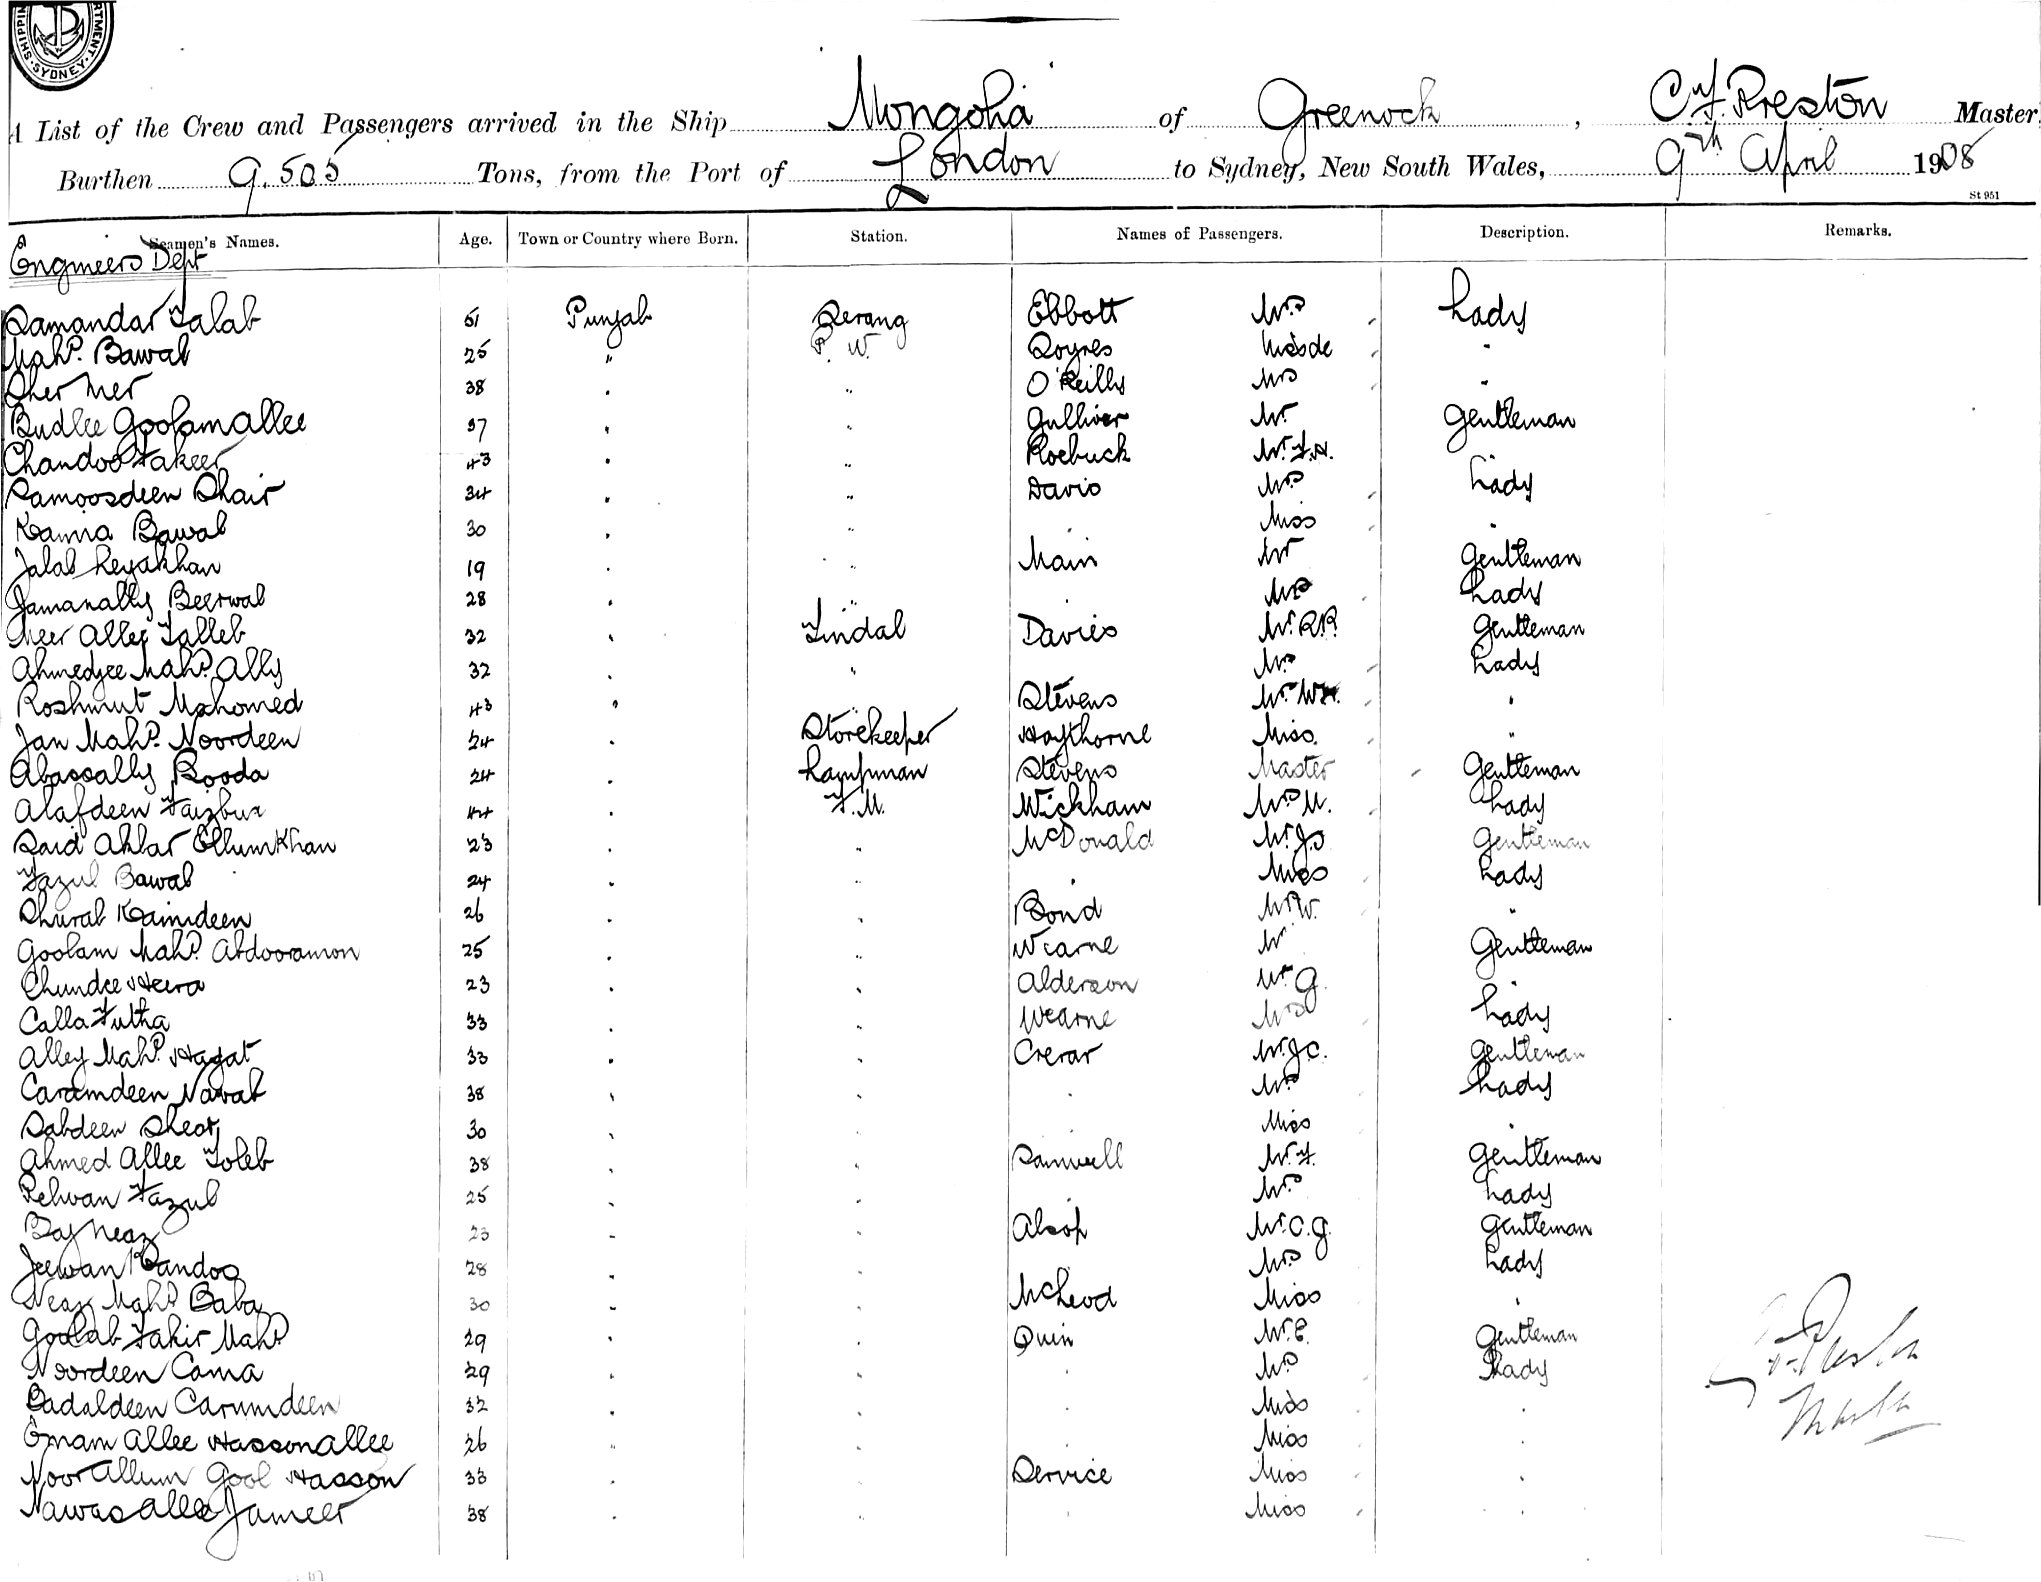 SHIPPING DEPARTMENT. SYDNEY.
A List of the Crew and Passengers arrived in the Ship Mongolia of Greenock, C. F. Preston Master
Burthen 9.505 Tons, from the Port of London to Sydney, New South Wales, 9th April 1908
St 951
Seamen's Names. Age. Town or Country where Born. Station. Names of Passengers. Description. Remarks.
Engineers Dept
Samandar Talab 51 Punjab Serang Ebbott Mrs Lady
Mahd. Bawal 25 " P. W. Soyres Miss de "
Sher Mer 38 " " O'Reilly Mrs "
Budlee Goolamallee 37 " " Gulliver Mr. Gentleman
Chandoo Fakeer 43 " " Roebuck Mr. F.H.
Samoosdeen Shair 34 " " Davis Mrs Lady
Kauna Bawal 30 " " " Miss "
Jalal Leyakhan 19 " " Main Mr Gentleman
Jamanally Beerwal 28 " " " Mrs Lady
Meer Allee Talleb 32 " Tindal Davies Mr. R.R. Gentleman
Ahmedjee Mahd. Ally 32 " " Mrs Lady
Roshmut Mahomed 43 " " Stevens Mrs W.H. "
Jan Mahd. Noordeen 24 " Storekeeper Haythorne Miss. "
Abassally Booda 24 " Lampman Stevens Master Gentleman
Alafdeen Faizbux 44 " F. M. Wickham Mrs M. Lady
Said Akbar Ellumkhan 23 " " McDonald Mr. Js Gentleman
Fazul Bawal 24 " " " Miss Lady
Shurab Kaimdeen 26 " " Bond Mrs W. "
Goolam Mahd. Abdooramon 25 " " Wearne Mr Gentleman
Chundee Heera 23 " " Alderson Mr G.
Calla Futha 33 " " Wearne Mrs Lady
Alley Mahd. Hayat 33 " " Crerar Mr. J.C. Gentleman
Caramdeen Nawab 38 " " " Mrs Lady
Sabdeen 30 " " " Miss "
Ahmed Allee Toleb 38 " " Samwell Mr. F. Gentleman
Pelwan Fazul 25 " " Mrs Lady
Baj Neaz 23 " " Alsop Mr. C.G. Gentleman
Jeewan Kandoo 28 " " Mrs Lady
Neaz Mahd. Baba 30 " " McLeod Miss "
Goolab Fakir Mahd. 29 " " Quin Mr. E. Gentleman
Noordeen Cama 29 " " " Mrs Lady
Badaldeen Carumdeen 32 " " " Miss "
Emam Allee Hassonallee 26 " " " Miss "
Noor Allum Gool Hasson 33 " " Service Miss "
Nawasallee Jameer 38 " " " Miss "
C F Preston
Master